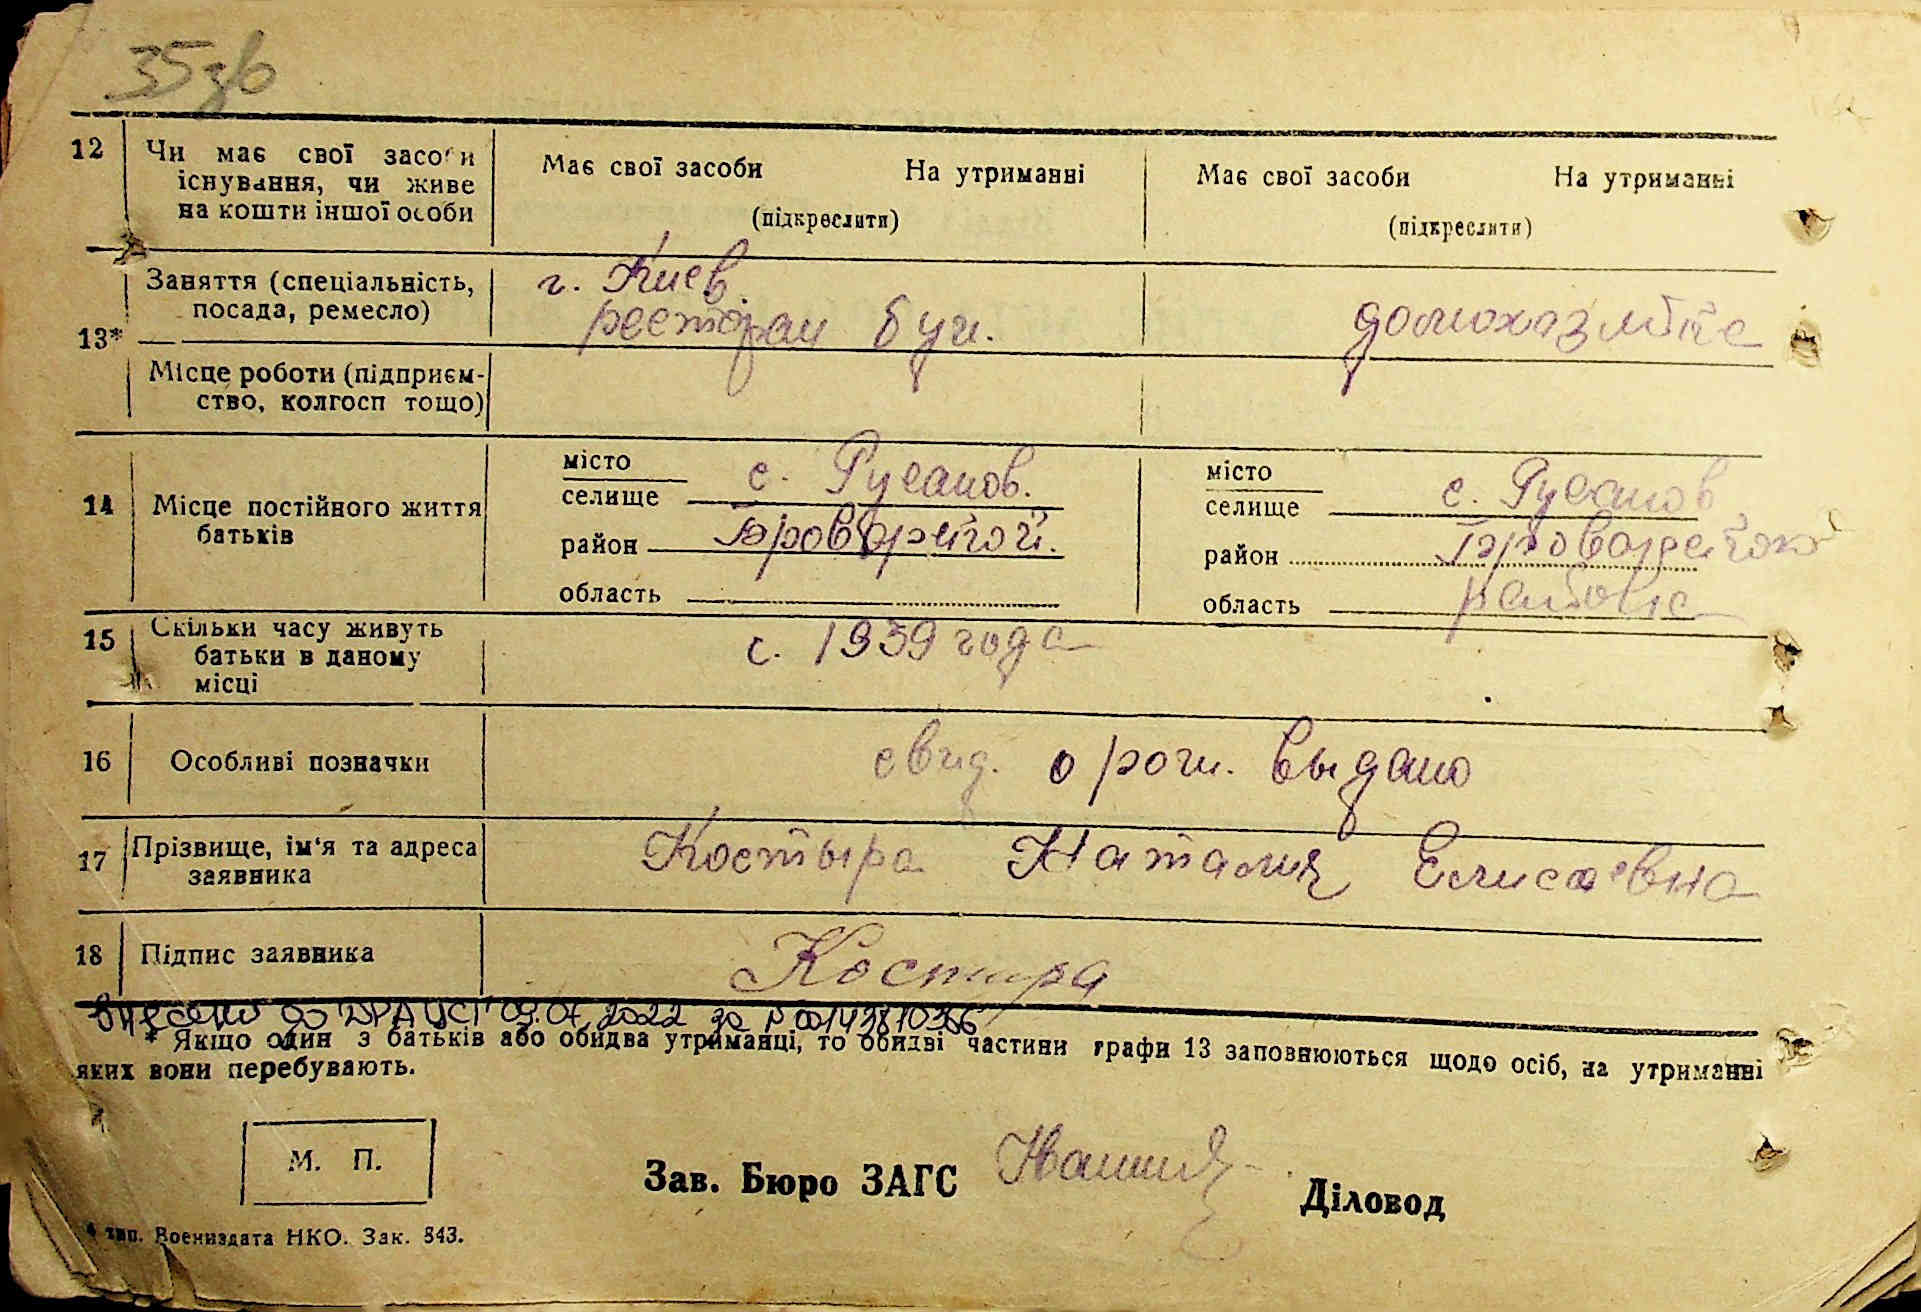 35зв
12 Чи має свої засоби Має свої засоби На утриманні Має свої засоби На утриманні
існування, чи живе
на кошти іншої особи (підкреслити) (підкреслити)
Заняття (спеціальність, г. Киев
посада, ремесло) ресторан буч. домохазяйке
13*
Місце роботи (підприєм-
ство, колгосп тощо)
місто с. Русанов. місто с. Русанов
селище селище
14 Місце постійного життя
батьків район Броварской. район Броварского
область область района
15 Скільки часу живуть с. 1939 года
батьки в даному
місці
16 Особливі позначки свид. о рогн. выдано
17 Прізвище, ім'я та адреса Костыра Наталия Елисаевна
заявника
18 Підпис заявника Костира
Внесено до ДРАЦСГ 09.07.2022 за № 00143810366
* Якщо один з батьків або обидва утриманці, то обидві частини графи 13 заповнюються щодо осіб, на утриманні
яких вони перебувають.
М. П.
Зав. Бюро ЗАГС Діловод
4 тип. Воениздата НКО. Зак. 843.